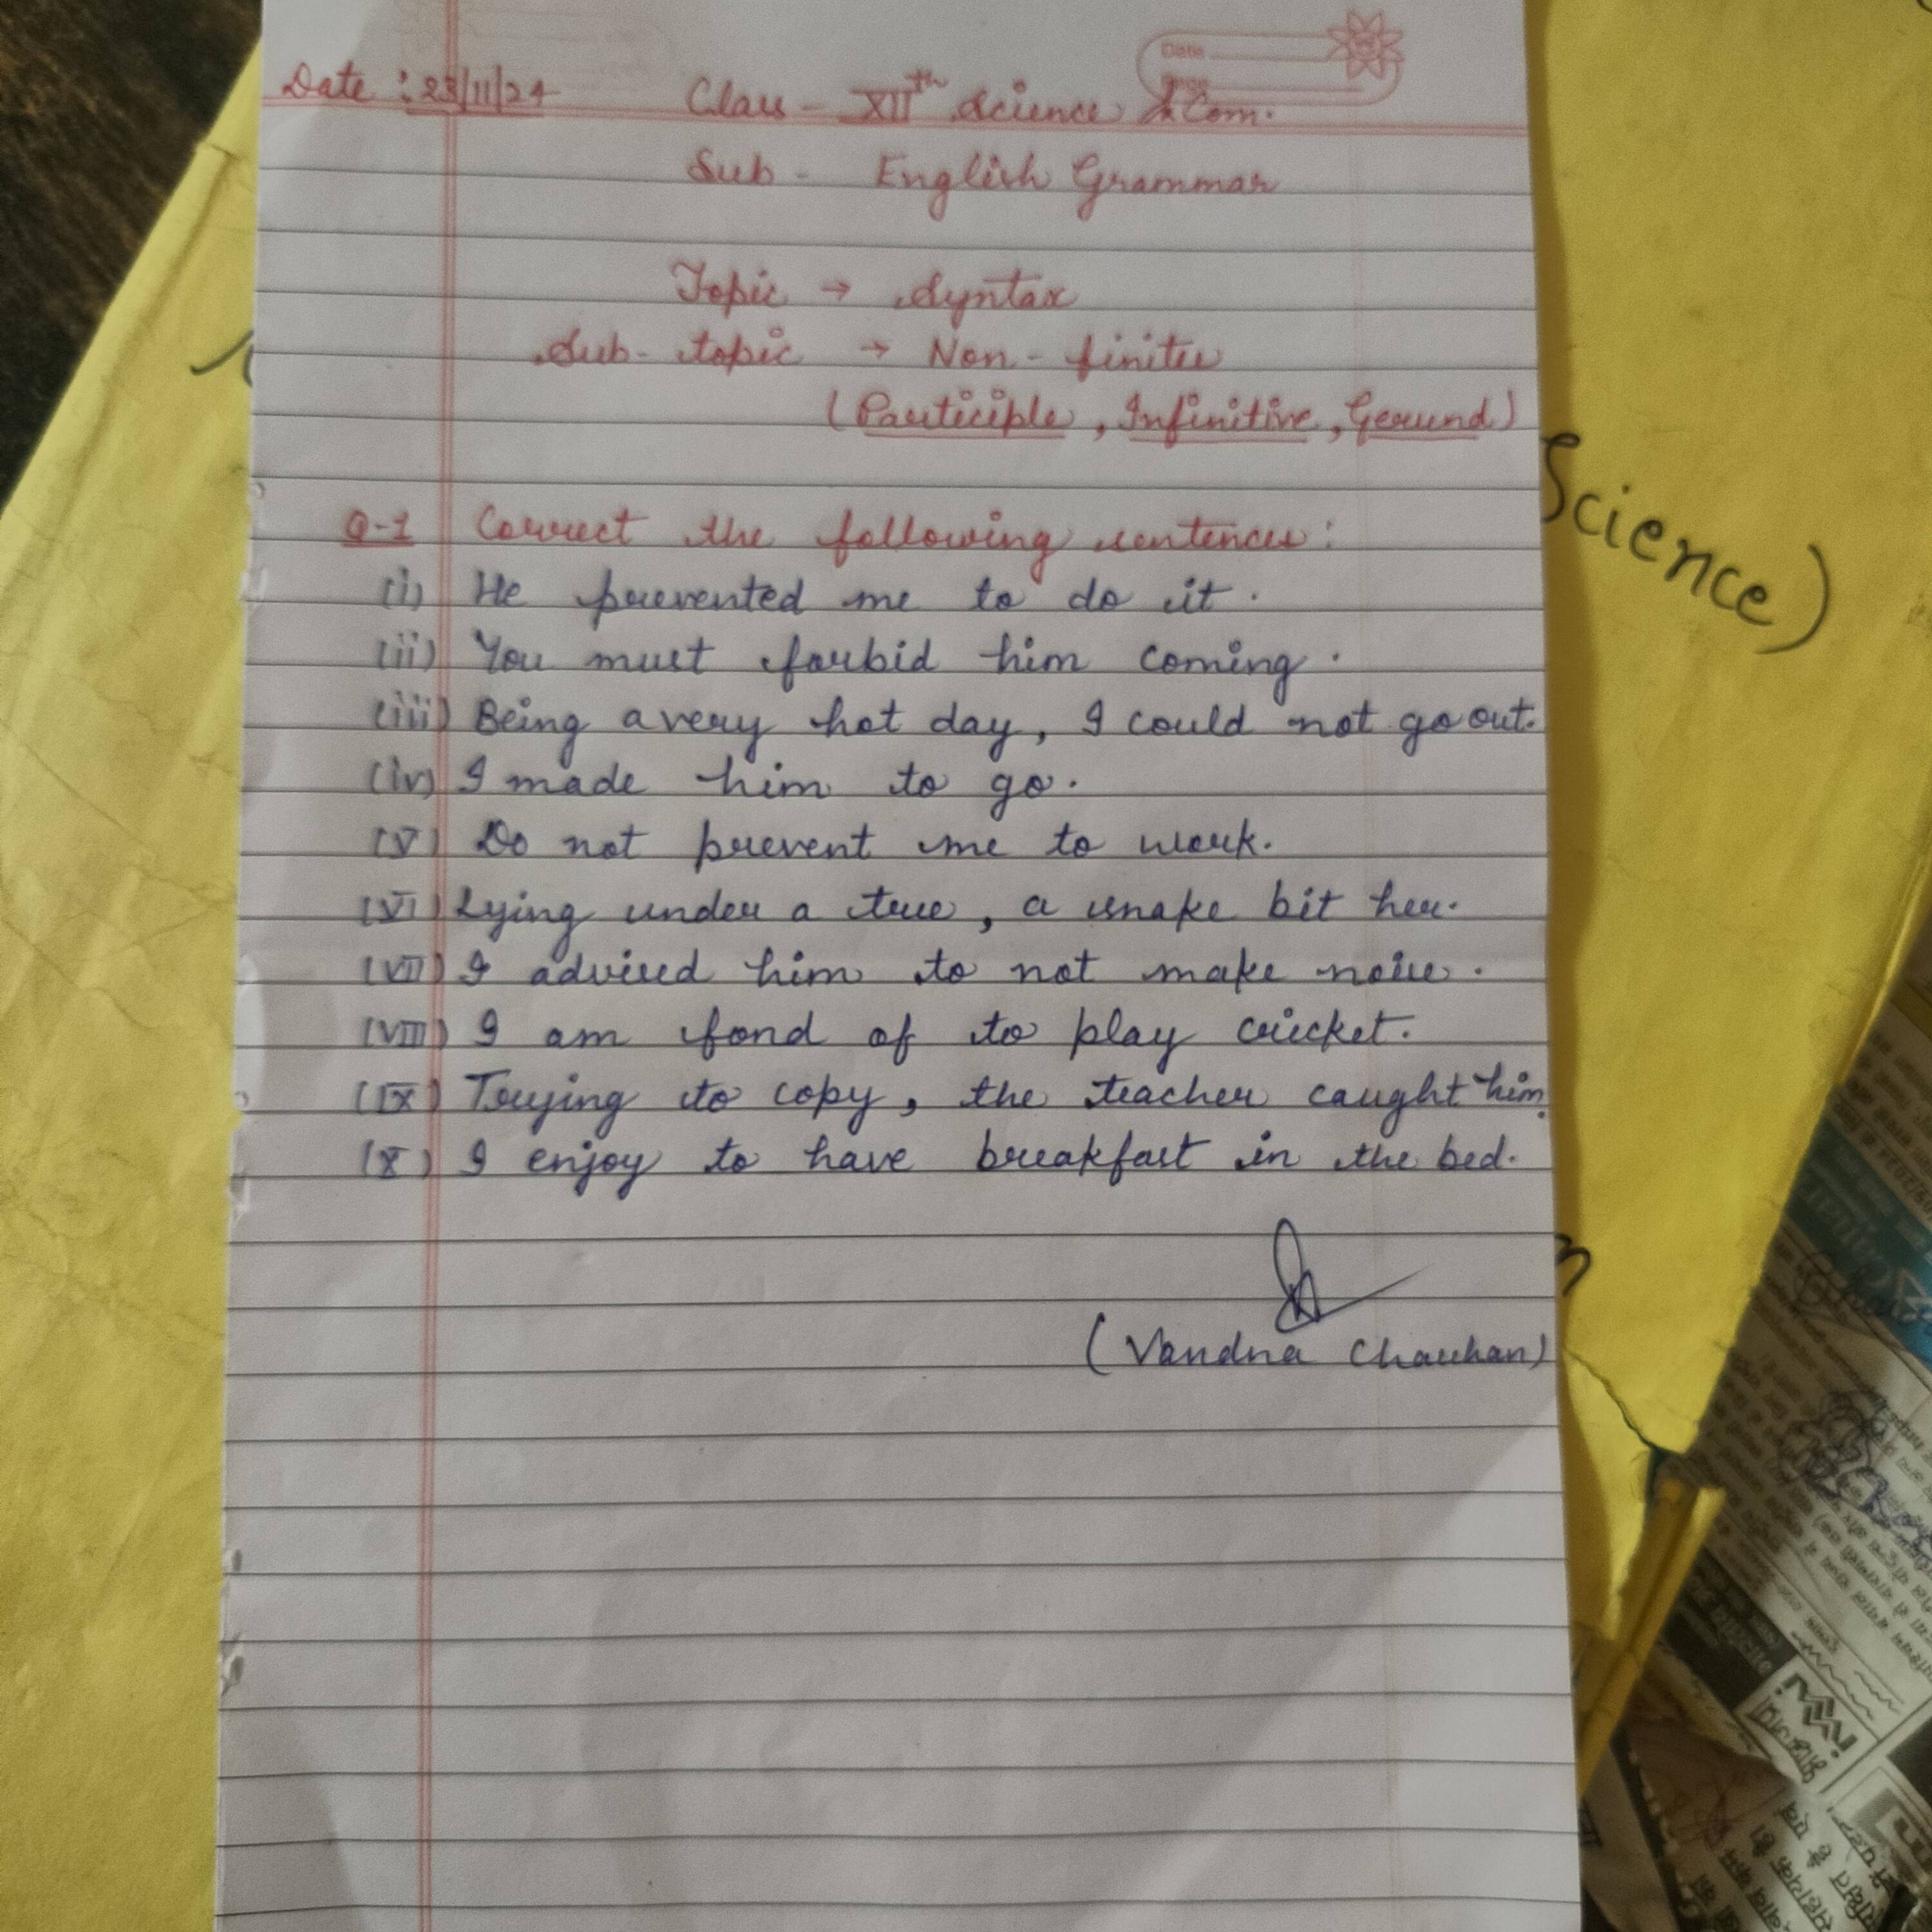 Date
Page
Date : 23/11/24 Class - XIIth Science & Com.
Sub - English Grammar
Topic → Syntax
Sub-topic → Non-finites
(Participle, Infinitive, Gerund)
Q-1 Correct the following sentences:
(i) He prevented me to do it.
(ii) You must forbid him coming.
(iii) Being a very hot day, I could not go out.
(iv) I made him to go.
(V) Do not prevent me to work.
(VI) Lying under a tree, a snake bit her.
(VII) I advised him to not make noise.
(VIII) I am fond of to play cricket.
(IX) Trying to copy, the teacher caught him.
(X) I enjoy to have breakfast in the bed.
(Vandna Chauhan)
Science)